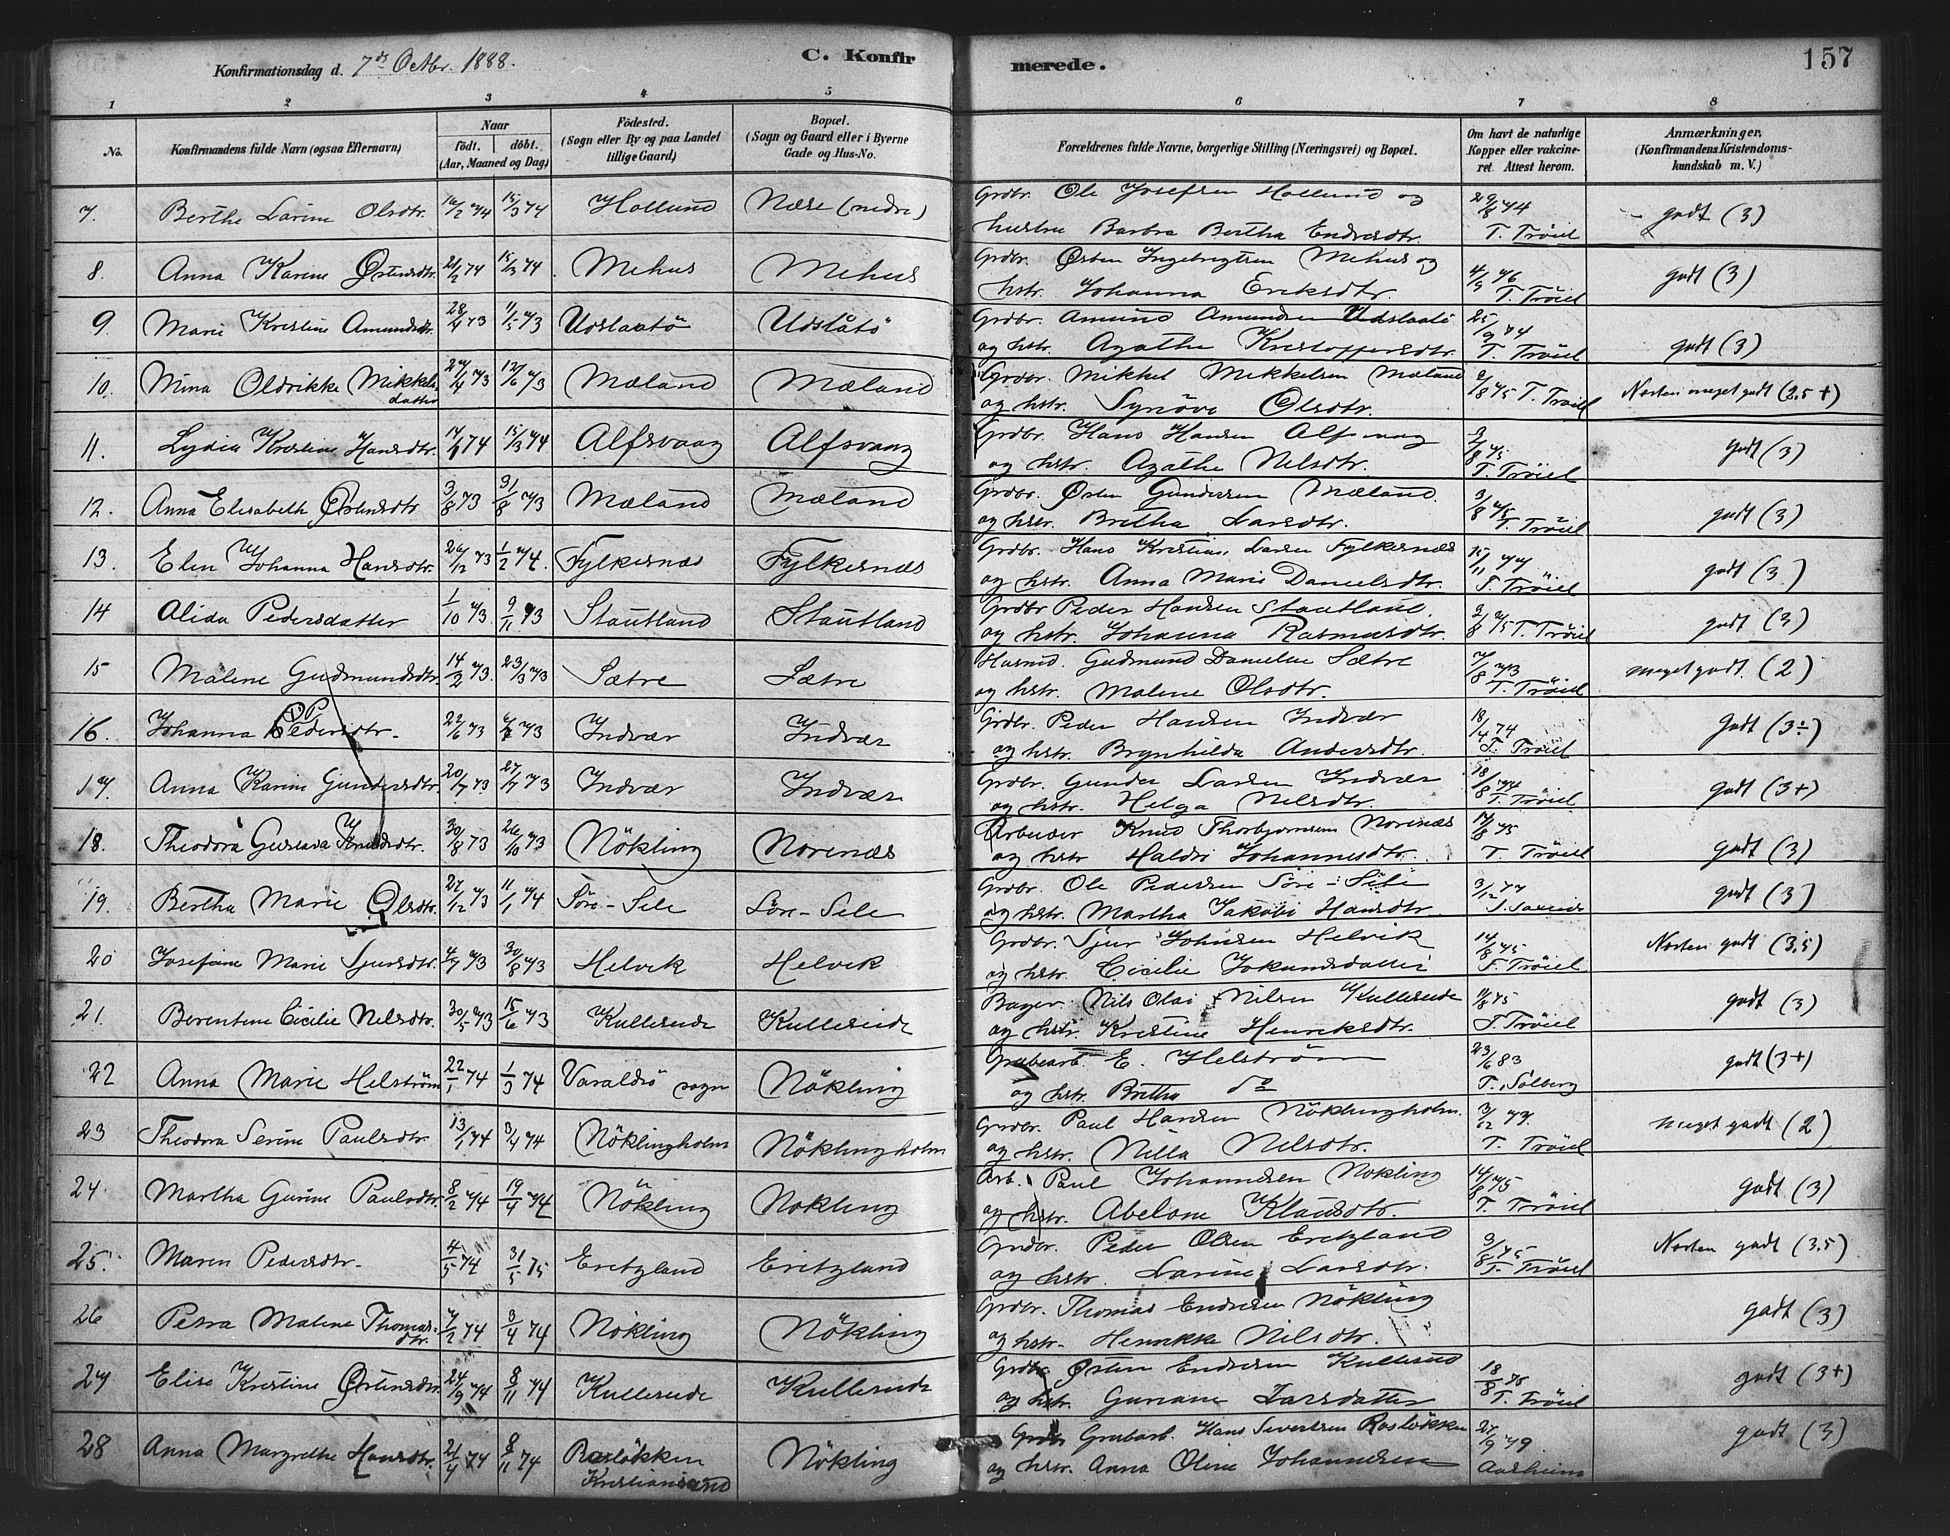 Konfirmationsdag d. 7de Octbr. 1888. C. Konfir merede. 157
1 2 3 4 5 6 7 8
No. Konfirmandens fulde Navn (ogsaa Efternavn) Naar født. døbt. (Aar, Maaned og Dag) Fødested. (Sogn eller By og paa Landet tillige Gaard) Bopæl. (Sogn og Gaard eller i Byerne Gade og Hus-No. Forældrenes fulde Navne, borgerlige Stilling (Næringsvei) og Bopæl. Om havt de naturlige Kopper eller vakcineret. Attest herom. Anmærkninger, (Konfirmandens Kristendomskundskab m. V.)
7. Berthe Larine Olsdtr. 16/2 74 15/3 74 Hollund Næse (nedre) Grdbr. Ole Josefsen Hollund og 29/8 74 godt (3)
hustru Barbra Bertha Endresdtr. T. Tröiel
8. Anna Karine Østensdtr. 21/2 74 15/3 74 Mehus Mehus Grdbr. Østen Ingebrigtsen Mehus og 4/9 76 godt (3)
hstr. Johanna Eriksdtr. T. Tröiel
9. Marie Kristine Amundsdtr. 28/4 73 11/5 73 Udslaatö Udslåtö Grdbr. Amund Amundsen Udslaatö 25/9 74 godt (3)
og hstr. Agathe Kristoffersdtr. T. Tröiel
10. Nina Oldrikke Mikkelsdatter 27/4 73 12/6 73 Mæland Mæland Grdbr. Mikkel Mikkelsen Mæland 2/8 75 T. Tröiel Næsten meget godt (2.5+)
og hstr. Synöve Olsdtr.
11. Lydia Kristine Hansdtr. 74 15/3 74 Alfsvaag Alfsvaag Grdbr. Hans Hansen Alfsvaag 3/8 75 godt (3)
og hstr. Agathe Nilsdtr. T. Tröiel
12. Anna Elisabeth Østensdtr 3/8 73 31/8 73 Mæland Mæland Grdbr. Østen Gundersen Mæland. 3/8 75 godt (3)
og hstr. Britha Larsdtr. T. Tröiel
13. Elen Johanna Hansdtr. 26/12 73 1/2 74. Fylkesnæs Fylkesnæs Grdbr. Hans Kristian Larsen Fylkesnæs 15/11 77 godt (3)
og hstr. Anna Marie Danielsdtr. T. Tröiel
14 Alida Pedersdatter 1/10 73. 9/11 73 Stautland Stautland Grdbr Peder Hansen Stautland. 3/8 75 T. Tröiel godt (3)
og hstr. Johanna Rasmusdtr.
15 Malene Gudmundsdtr. 14/2 73. 23/3 73 Sætre Sætre Husmd. Gudmund Danielsen Sætre 7/8 73 meget godt (2)
og hstr. Malene Olsdtr. T. Tröiel
16. Johanna Pedersdtr. 22/6 73 6/7 73 Indvær Indvær Grdbr. Peder Hansen Indvær 18/4 74 godt (3÷)
og hstr. Brynhilda Andersdtr. T. Tröiel
17. Anna Karine Gundersdtr. 20/7 73. 27/7 73 Indvær Indvær Grdbr. Gunder Larsen Indvær 18/8 74 godt (3+)
og hstr. Helga Nilsdtr. T. Tröiel
18. Theodora Gustava Knudsdtr. 30/8 73 26/10 73 Nökling Norenæs Arbeider Knud Thorbjørnsen Norenæs 14/8 75 godt (3)
og hstr Haldri Johannesdtr. T. Tröiel
19. Bertha Marie Olsdtr. 27/12 73 11/1 74 Söre-Sele Söre-Sele Grdbr. Ole Pedersen Söre-Sele 3/12 77 godt (3)
og hstr. Martha Jakobi Hansdtr.
20 Josefine Marie Sjursdtr. 4/7 73 30/8 73 Helvik Helvik Grdbr. Sjur Johnsen Helvik 14/8 75 Næsten godt (3.5)
og hstr. Cicilie Jokumsdatter T. Tröiel
21. Berentine Cicilie Nilsdtr. 30/5 73 15/6 73 Kulleseide Kulleseide Bager Nils Olai Nilsen Kulleseide 14/8 75 godt (3)
og hstr. Kristine Henriksdtr. T. Tröiel
22 Anna Marie Helström 22/1 74 1/3 74 Varaldsö sogn Nökling Grubearb. E. Helström 23/6 83 godt (3+)
og hstr. Britha do T. Solberg
23 Theodora Serine Paulsdtr. 13/1 74 3/4 74 Nöklingholm Nöklingholm Grdbr. Paul Hansen Nöklingholm. 3/12 77. meget godt (2)
og hstr. Nilla Nilsdtr. T. Tröiel
24. Martha Gurine Paulsdtr. 8/2 74 19/4 74 Nökling Nökling Arb. Paul Johannesen Nökling 14/8 75 godt (3)
og hstr. Abelone Klausdtr. T. Tröiel
25. Maren Pedersdtr. 4/5 74 31/5 75 Eritzland Eritzland Grdbr. Peder Olsen Eritzland 3/8 75 Næsten godt (3.5)
og hstr. Larine Larsdtr. T. Tröiel
26 Petra Malene Thomasdtr. 7/2 74 3/4 74 Nökling Nökling Grdbr. Thomas Endresen Nökling godt (3)
og hstr. Henrikke Nilsdtr.
27 Elise Kristine Østensdtr. 24/9 74 8/11 74 Kulleseide Kulleseide Grdbr Østen Endresen Kulleseid 18/8 godt (3+)
og hstr. Guriane Larsdatter T. Tröiel
28 Anna Margrethe Hansdtr. 21/4 74 8/11 74 Rosløkken Kristiansand Nökling Grdbr Grubarb. Hans Sivertsen Rosløkken 27/9 79. godt (3)
og hstr. Anna Oline Johannesen Aasheim